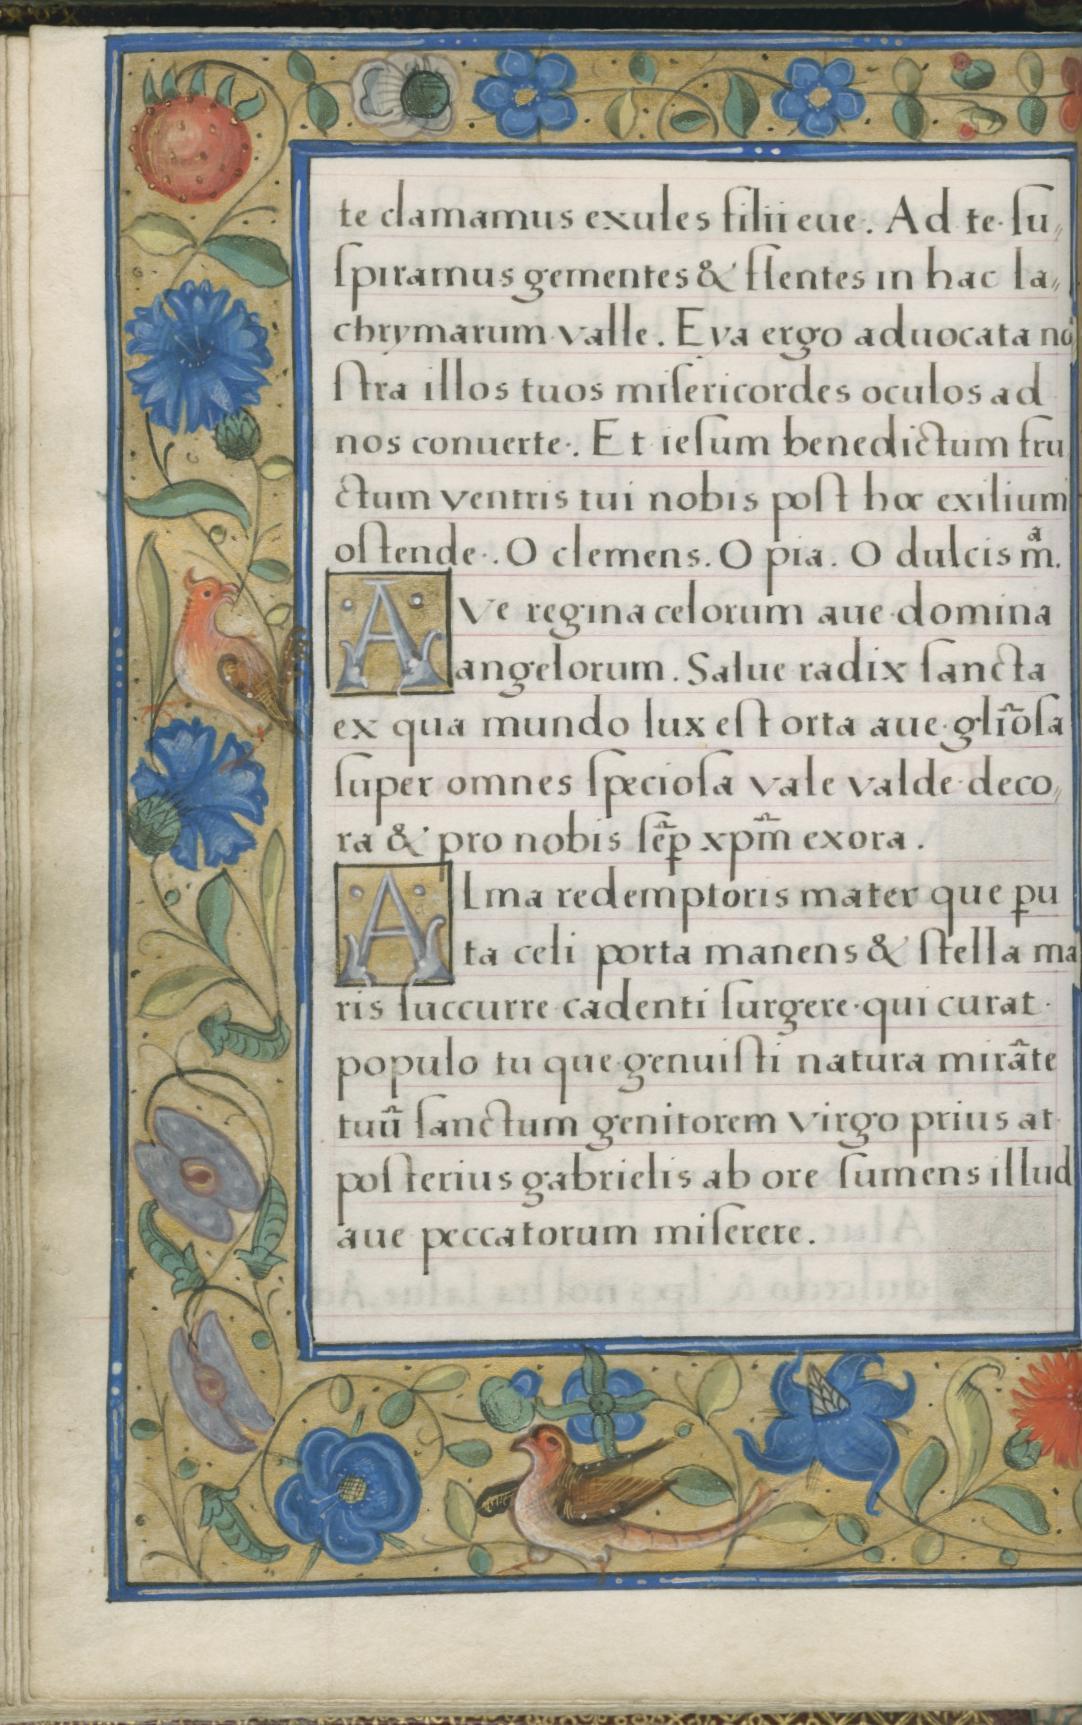 te clamamus exules filii eue. Ad te su„
spiramus gementes & flentes in hac la„
chrymarum valle. Eya ergo aduocata no
stra illos tuos misericordes oculos ad
nos conuerte. Et iesum benedictum fru
ctum ventris tui nobis post hoc exilium
ostende. O clemens. O pia. O dulcis m̃a.
AVe regina celorum aue domina
angelorum. Salue radix sancta
ex qua mundo lux est orta aue gli͂osa
super omnes speciosa vale valde deco„
ra & pro nobis sẽp xpm̃ exora.
ALma redemptoris mater que ꝑu
ta celi porta manens & stella ma
ris succurre cadenti surgere qui curat
populo tu que genuisti natura mirãte
tuũ sanctum genitorem virgo prius at
posterius gabrielis ab ore sumens illud
aue peccatorum miserere.